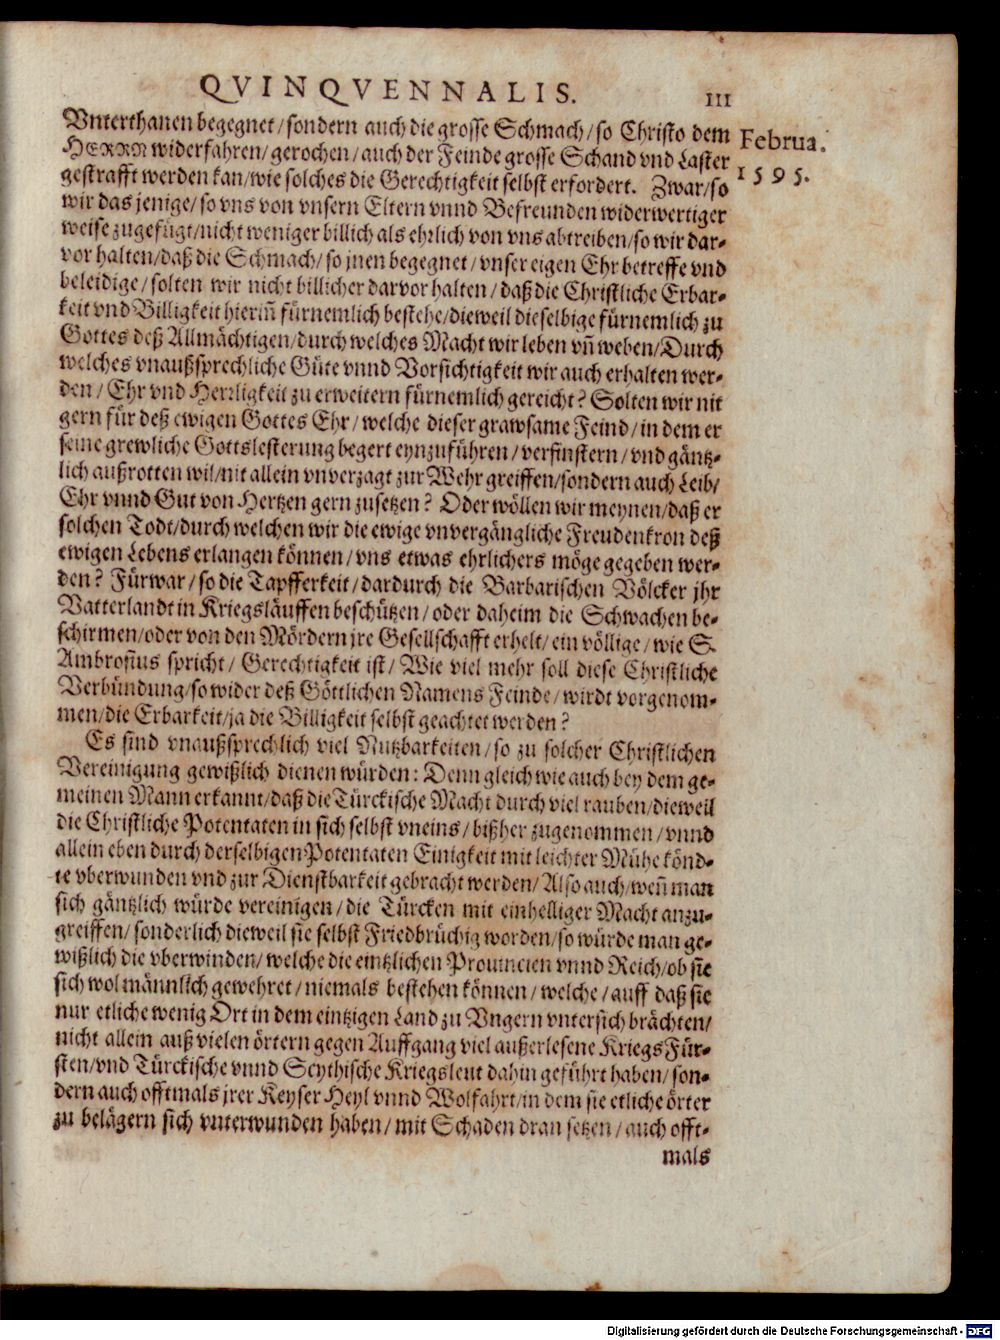 QVINQVENNALIS. 111
Februa.
1595.
Vnterthanen begegnet/sondern auch die grosse Schmach/so Christo dem
HERRN widerfahren/gerochen/auch der Feinde grosse Schand vnd Laster
gestrafft werden kan/wie solches die Gerechtigkeit selbst erfordert. Zwar/so
wir das jenige/so vns von vnsern Eltern vnnd Befreunden widerwertiger
weise zugefügt/nicht weniger billich als ehrlich von vns abtreiben/so wir dar-
vor halten/daß die Schmach/so jnen begegnet/vnser eigen Ehr betreffe vnd
beleidige/solten wir nicht billicher darvor halten/daß die Christliche Erbar-
keit vnd Billigkeit hierin̄ fürnemlich bestehe/dieweil dieselbige fürnemlich zu
Gottes deß Allmächtigen/durch welches Macht wir leben vn̄ weben/Durch
welches vnaußsprechliche Güte vnnd Vorsichtigkeit wir auch erhalten wer-
den/Ehr vnd Herrligkeit zu erweitern fürnemlich gereicht? Solten wir nit
gern für deß ewigen Gottes Ehr/welche dieser grawsame Feind/in dem er
seine grewliche Gottslesterung begert eynzuführen/verfinstern/vnd gäntz-
lich außrotten wil/nit allein vnverzagt zur Wehr greiffen/sondern auch Leib/
Ehr vnnd Gut von Hertzen gern zusetzen? Oder wöllen wir meynen/daß er
solchen Todt/durch welchen wir die ewige vnvergängliche Freudenkron deß
ewigen Lebens erlangen können/vns etwas ehrlichers möge gegeben wer-
den? Fürwar/so die Tapfferkeit/dardurch die Barbarischen Völcker jhr
Vatterlandt in Kriegsläuffen beschützen/oder daheim die Schwachen be-
schirmen/oder von den Mördern jre Gesellschafft erhelt/ein völlige/wie S.
Ambrosius spricht/Gerechtigkeit ist/Wie viel mehr soll diese Christliche
Verbündung/so wider deß Göttlichen Namens Feinde/wirdt vorgenom-
men/die Erbarkeit/ja die Billigkeit selbst geachtet werden?
Es sind vnaußsprechlich viel Nutzbarkeiten/so zu solcher Christlichen
Vereinigung gewißlich dienen würden: Denn gleich wie auch bey dem ge-
meinen Mann erkannt/daß die Türckische Macht durch viel rauben/dieweil
die Christliche Potentaten in sich selbst vneins/bißher zugenommen/vnnd
allein eben durch derselbigen Potentaten Einigkeit mit leichter Mühe könd-
te vberwunden vnd zur Dienstbarkeit gebracht werden/Also auch/wen̄ man
sich gäntzlich würde vereinigen/die Türcken mit einhelliger Macht anzu-
greiffen/sonderlich dieweil sie selbst Friedbrüchig worden/so würde man ge-
wißlich die vberwinden/welche die eintzlichen Prouincien vnnd Reich/ob sie
sich wol männlich gewehret/niemals bestehen können/welche/auff daß sie
nur etliche wenig Ort in dem eintzigen Land zu Vngern vntersich brächten/
nicht allein auß vielen örtern gegen Auffgang viel außerlesene Kriegs Für-
sten/vnd Türckische vnnd Scythische Kriegsleut dahin geführt haben/son-
dern auch offtmals jrer Keyser Heyl vnnd Wolfahrt/in dem sie etliche örter
zu belägern sich vnterwunden haben/mit Schaden dran setzen/auch offt-
mals
Digitalisierung gefördert durch die Deutsche Forschungsgemeinschaft - DFG